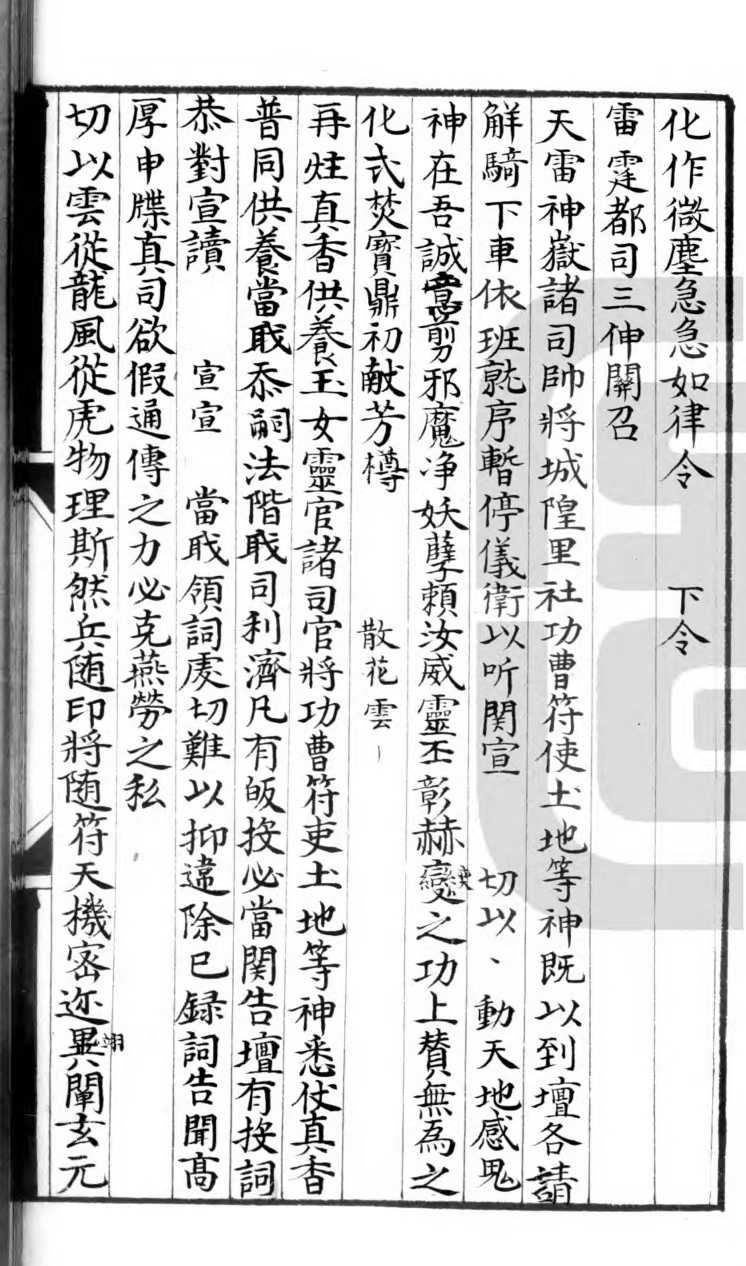 化作微塵急急如律令　下令
雷霆都司三伸關召
天雷神嶽諸司帥將城隍里社功曹符使土地等神既以到壇各請
觧騎下車依班就序暫停儀衛以听関宣　切以、動天地感鬼
神在吾誠意剪邪魔净妖孽頼汝威靈丕彰赫變之功上賛無為之
化式焚寳鼎初献芳樽　散花雲
再炷真香供養玉女靈官諸司官將功曹符吏土地等神悉仗真香
普同供養當戝忝嗣法階戝司利濟凡有皈投必當関告壇有投詞
恭對宣讀　宣宣　當戝領詞虔切難以抑違除已録詞告聞高
厚申牒真司欲假通傳之力必克燕勞之私
切以雲從龍風從虎物理斯然兵随印將随符天機密迩異闡玄元